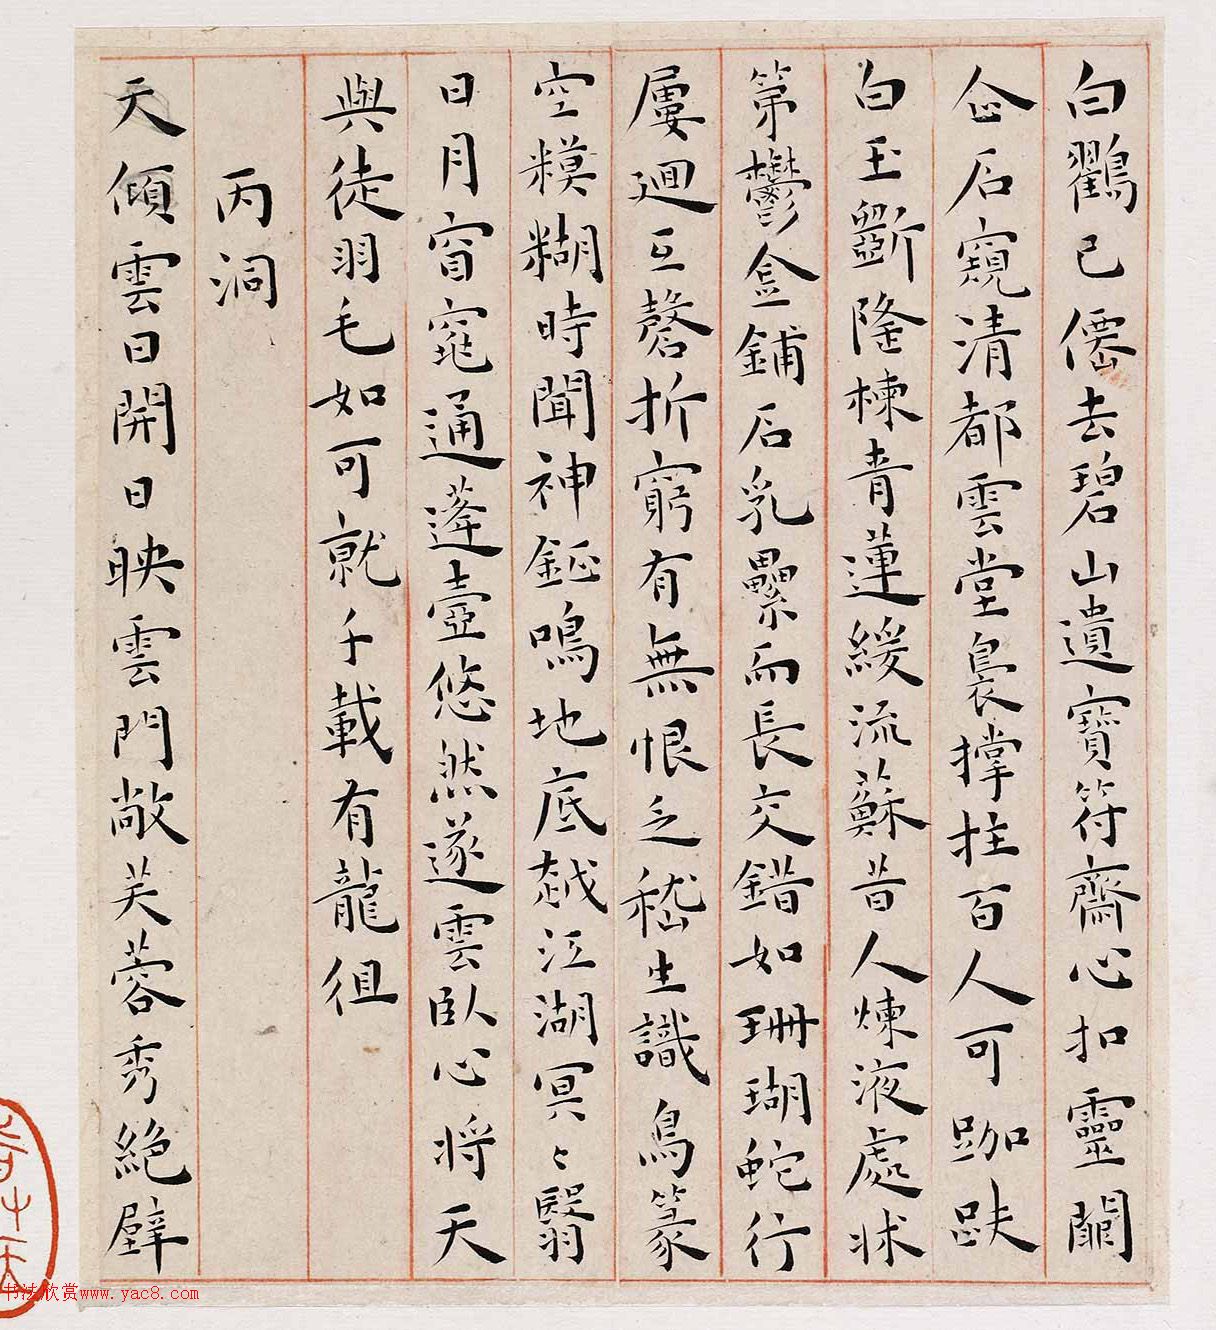 白鸛已僊去碧山遺寶符齋心扣靈關
仚石窺清都雲堂裊撐拄百人可跏趺
白玉斵隆棟青蓮緩流蘇昔人煉液處牀
第鬱盒鋪石乳纍而長交錯如珊瑚蛇行
屢廻互磬折窮有無恨乏嵇生識鳥篆
空糢糊時聞神鉦鳴地底越江湖冥〻翳
日月窅窕通蓬壺悠然遂雲臥心將天
與徒羽毛如可就千載有龍徂
丙洞
天傾雲日開日映雲門敞芙蓉秀絕壁
书法欣赏www.yac8.com